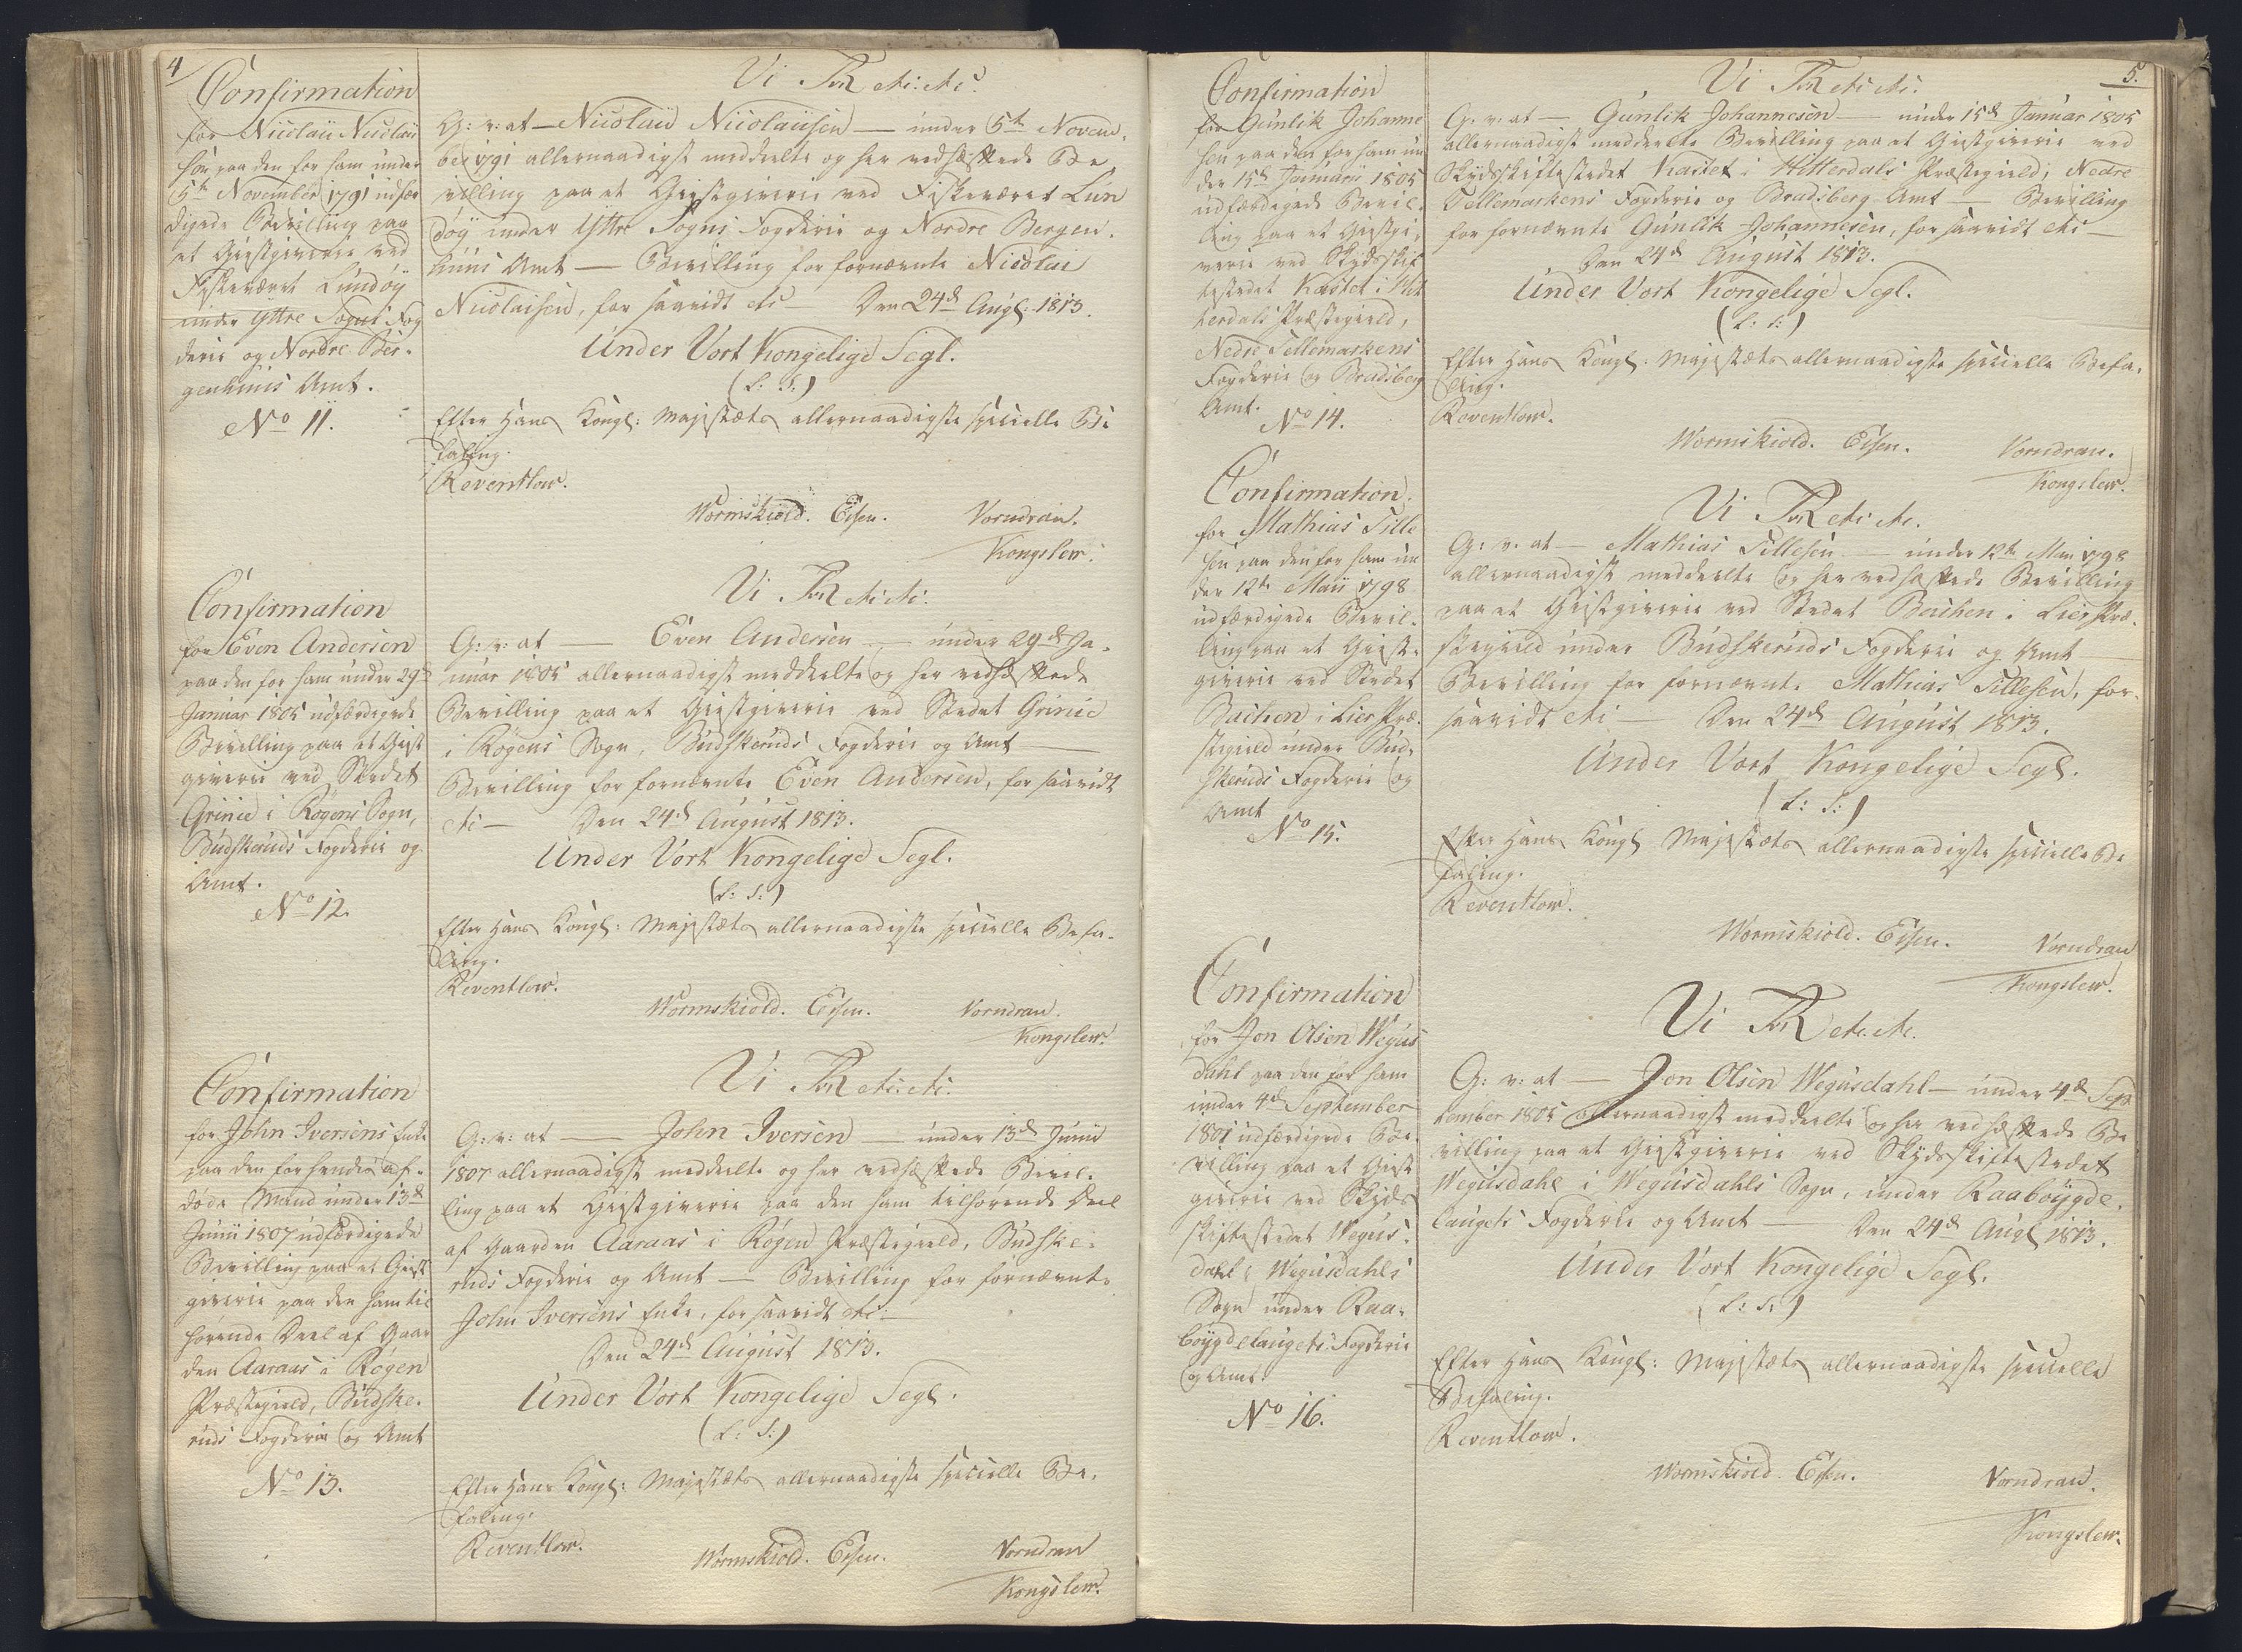 4
Confirmation
for Nicolai Nicolai
sen paa den for ham under
5te November 1791 udfær
digede Bevilling paa
et Giestgiverie ved
Fiskeværet Lundöÿ
under Yttre Sogns Fog
derie og Nordre Ber-
genhuus Amt.
No 11.
Vi FrR etc: etc:
G: v: at — Nicolai Nicolaisen — under 5te Novem-
ber 1791 allernaadigst meddeelte og her vedhæftede Be
villing paa et Giestgiverie ved Fiskeværet Lun
döÿ under Yttre Sogns Fogderie og Nordre Bergen-
huus Amt — Bevilling for fornævnte Nicolai
Nicolaisen, for saavidt etc Den 24de Augs: 1813.
Under Vort Kongelige Segl.
(L: S:)
Efter Hans Kongl: Majestæts allernaadigste specielle Be
faling.
Reventlow.
Wormskiold. Essen. Vorndran.
Kongslew.
Confirmation
for Even Andersen
paa den for ham under 29de
Januar 1805 udfærdigede
Bevilling paa et Giest
giverie ved Stedet
Grinie i Rögens Sogn,
Budskeruds Fogderie og
Amt.
No 12.
Vi FrR etc etc:
G: v: at — Even Andersen — under 29de Ja-
nuar 1805 allernaadigst meddeelte og her vedhæftede
Bevilling paa et Giestgiverie ved Stedet Grinie
i Rögens Sogn, Budskeruds Fogderie og Amt —
Bevilling for fornævnte Even Andersen, for saavidt
etc — Den 24de August 1813.
Under Vort Kongelige Segl.
(L: S:)
Efter Hans Kongl: Majestæts allernaadigste specielle Befa-
ling.
Reventlow.
Wormskiold. Essen. Vorndran.
Kongslew.
Confirmation
for John Iversens Enke
paa den for hendes af-
döde Mand under 13de
Junii 1807 udfærdigede
Bevilling paa et Giest
giverie paa den ham til
hörende Deel af Gaar
den Aaraas i Rögen
Præstegield, Budske-
ruds Fogderie og Amt
No 13.
Vi FrR etc: etc:
G: v: at — John Iversen — under 13de Junii
1807 allernaadigst meddeelte og her vedhæftede Bevil-
ling paa et Giestgiverie paa den ham tilhörende Deel
af Gaarden Aaraas i Rögen Præstegield, Budske-
ruds Fogderie og Amt — Bevilling for fornævnte
John Iversens Enke, for saavidt etc —
Den 24de August 1813.
Under Vort Kongelige Segl.
(L: S:)
Efter Hans Kongl: Majestæts allernaadigste specielle Be-
faling.
Reventlow.
Wormskiold. Essen. Vorndran
Kongslew.
5.
Confirmation
for Gunlik Johanne
sen paa den for ham un
der 15de Januarii 1805
udfærdigede Bevil-
ling paa et Giestgi-
verie ved Skydsskif
testedet Kastet i Hit
terdals Præstegield,
Nedre Tellemarkens
Fogderie og Bradsberg
Amt.
No 14.
Vi FrR etc etc:
G: v: at — Gunlik Johannesen — under 15de Januar 1805
allernaadigst meddeelte Bevilling paa et Giestgiverie ved
Skydsskiftestedet Kastet i Hitterdals Præstegield, Nedre
Tellemarkens Fogderie og Bradsberg Amt — Bevilling
for fornævnte Gunlik Johannesen, for saavidt etc —
Den 24de August 1813.
Under Vort Kongelige Segl.
(L: S:)
Efter Hans Kongl: Majestæts allernaadigste specielle Befa-
ling.
Reventlow.
Wormskiold. Essen. Vorndran.
Kongslew.
Confirmation.
for Mathias Tille
sen paa den for ham un
der 12te Maii 1798
udfærdigede Bevil-
ling paa et Giest-
giverie ved Stedet
Bachen i Lier Præ-
stegield under Bud-
skeruds Fogderie og
Amt
No 15.
Vi FrR etc etc.
G: v. at — Mathias Tillesen — under 12te Maii 1798
allernaadigst meddeelte og her vedhæftede Bevilling
paa et Giestgiverie ved Stedet Bachen i Lier Præ-
stegield under Budskeruds Fogderie og Amt —
Bevilling for fornævnte Mathias Tillesen, for-
saavidt etc — Den 24de August 1813.
Under Vort Kongelige Segl.
(L: S:)
Efter Hans Kongl Majestæts allernaadigste specielle Be
faling.
Reventlow.
Wormskiold. Essen. Vorndran
Kongslew.
Confirmation
for Jon Olsen Wegus
dahl paa den for ham
under 4de September
1801 udfærdigede Be-
villing paa et Giest
giverie ved Skyds
skiftestedet Wegus-
dahl i Wegusdahls
Sogn under Raa-
böygdelaugets Fogderie
og Amt.
No 16.
Vi FrR etc. etc.
G: v: at — Jon Olsen Wegusdahl — under 4de Sep
tember 1805 allernaadigst meddeelte og her vedhæftede Be
villing paa et Giestgiverie ved Skydsskiftestedet
Wegusdahl i Wegusdahls Sogn, under Raaböygde-
laugets Fogderie og Amt — Den 24de Augs 1813.
Under Vort Kongelige Segl.
(L: S:)
Efter Hans Kongl: Majestæts allernaadigste specielle
Befaling.
Reventlow.
Wormskiold. Essen. Vorndran.
Kongslew.